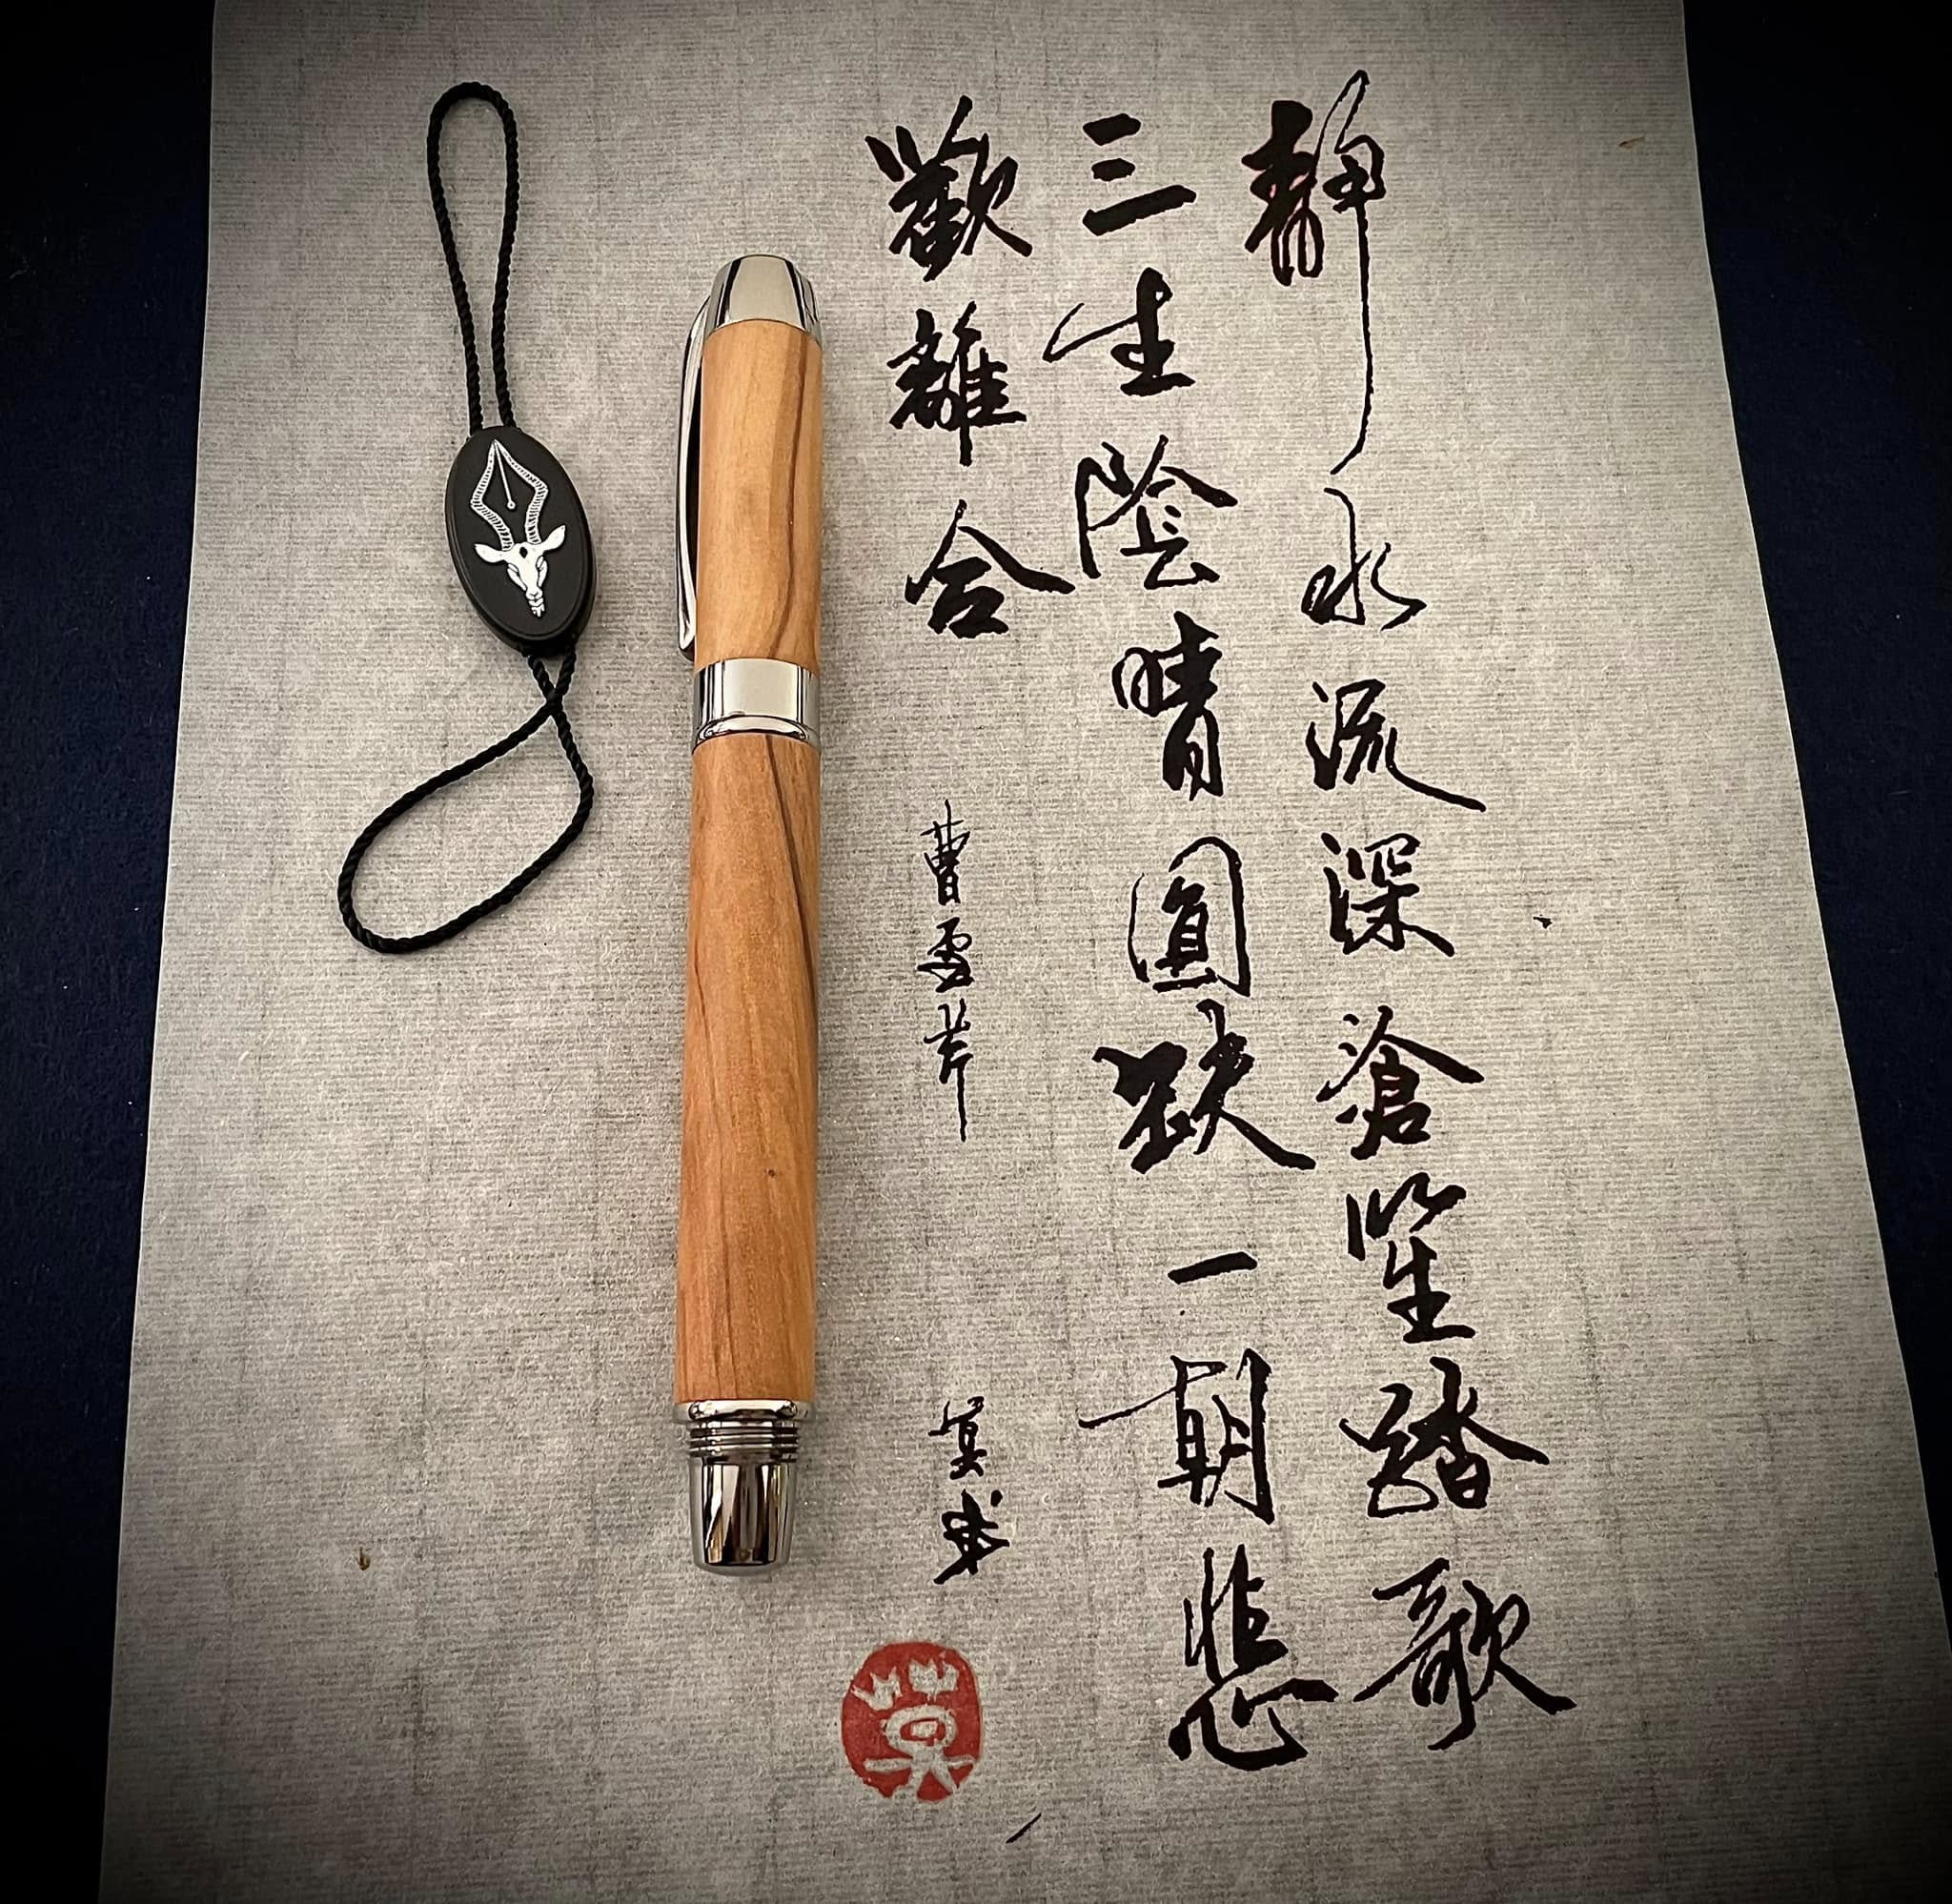 靜水流深滄笙踏歌
三生陰晴圓缺一朝悲
歡離合
曹雪芹
莫